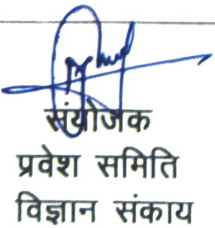 संयोजक
प्रवेश समिति
विज्ञान संकाय